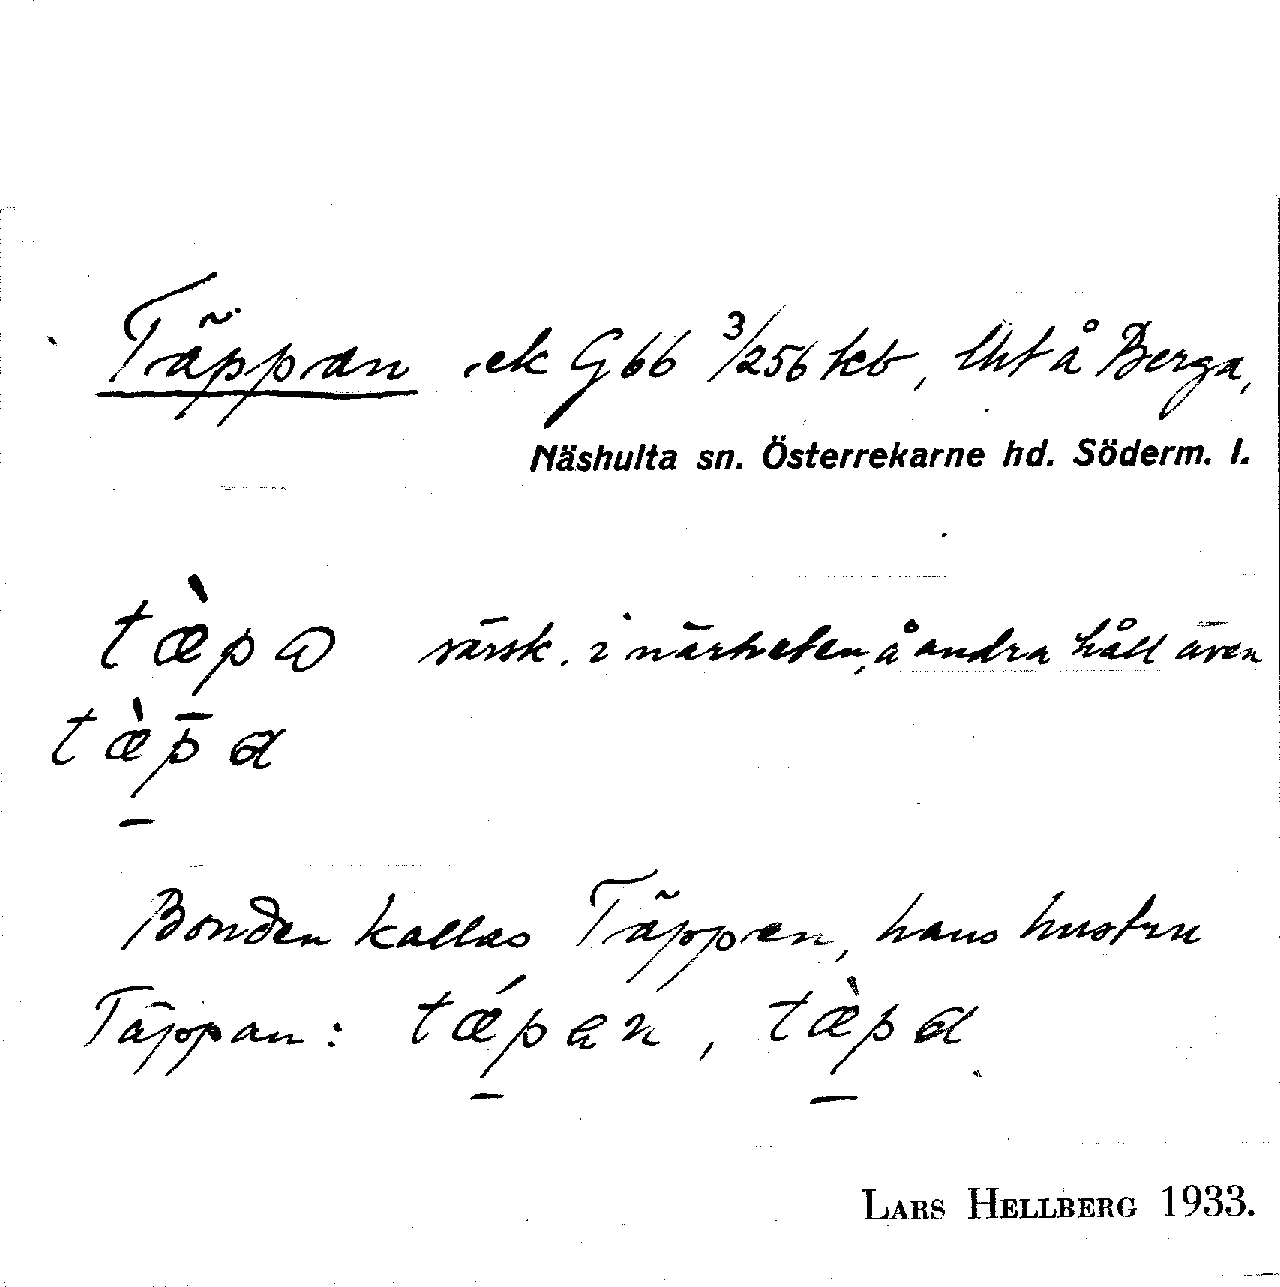 Täppan .ek G66 3/256 kb, Utå Berga,
Näshulta sn. Österrekarne hd. Söderm. l.
tæ̀pɷ särsk. i närheten, å andra håll även
tæ̀p̄a
Bonden kallas Täppen, hans hustru
Täppan: tǽpan, tæ̀pa
LARS HELLBERG 1933.